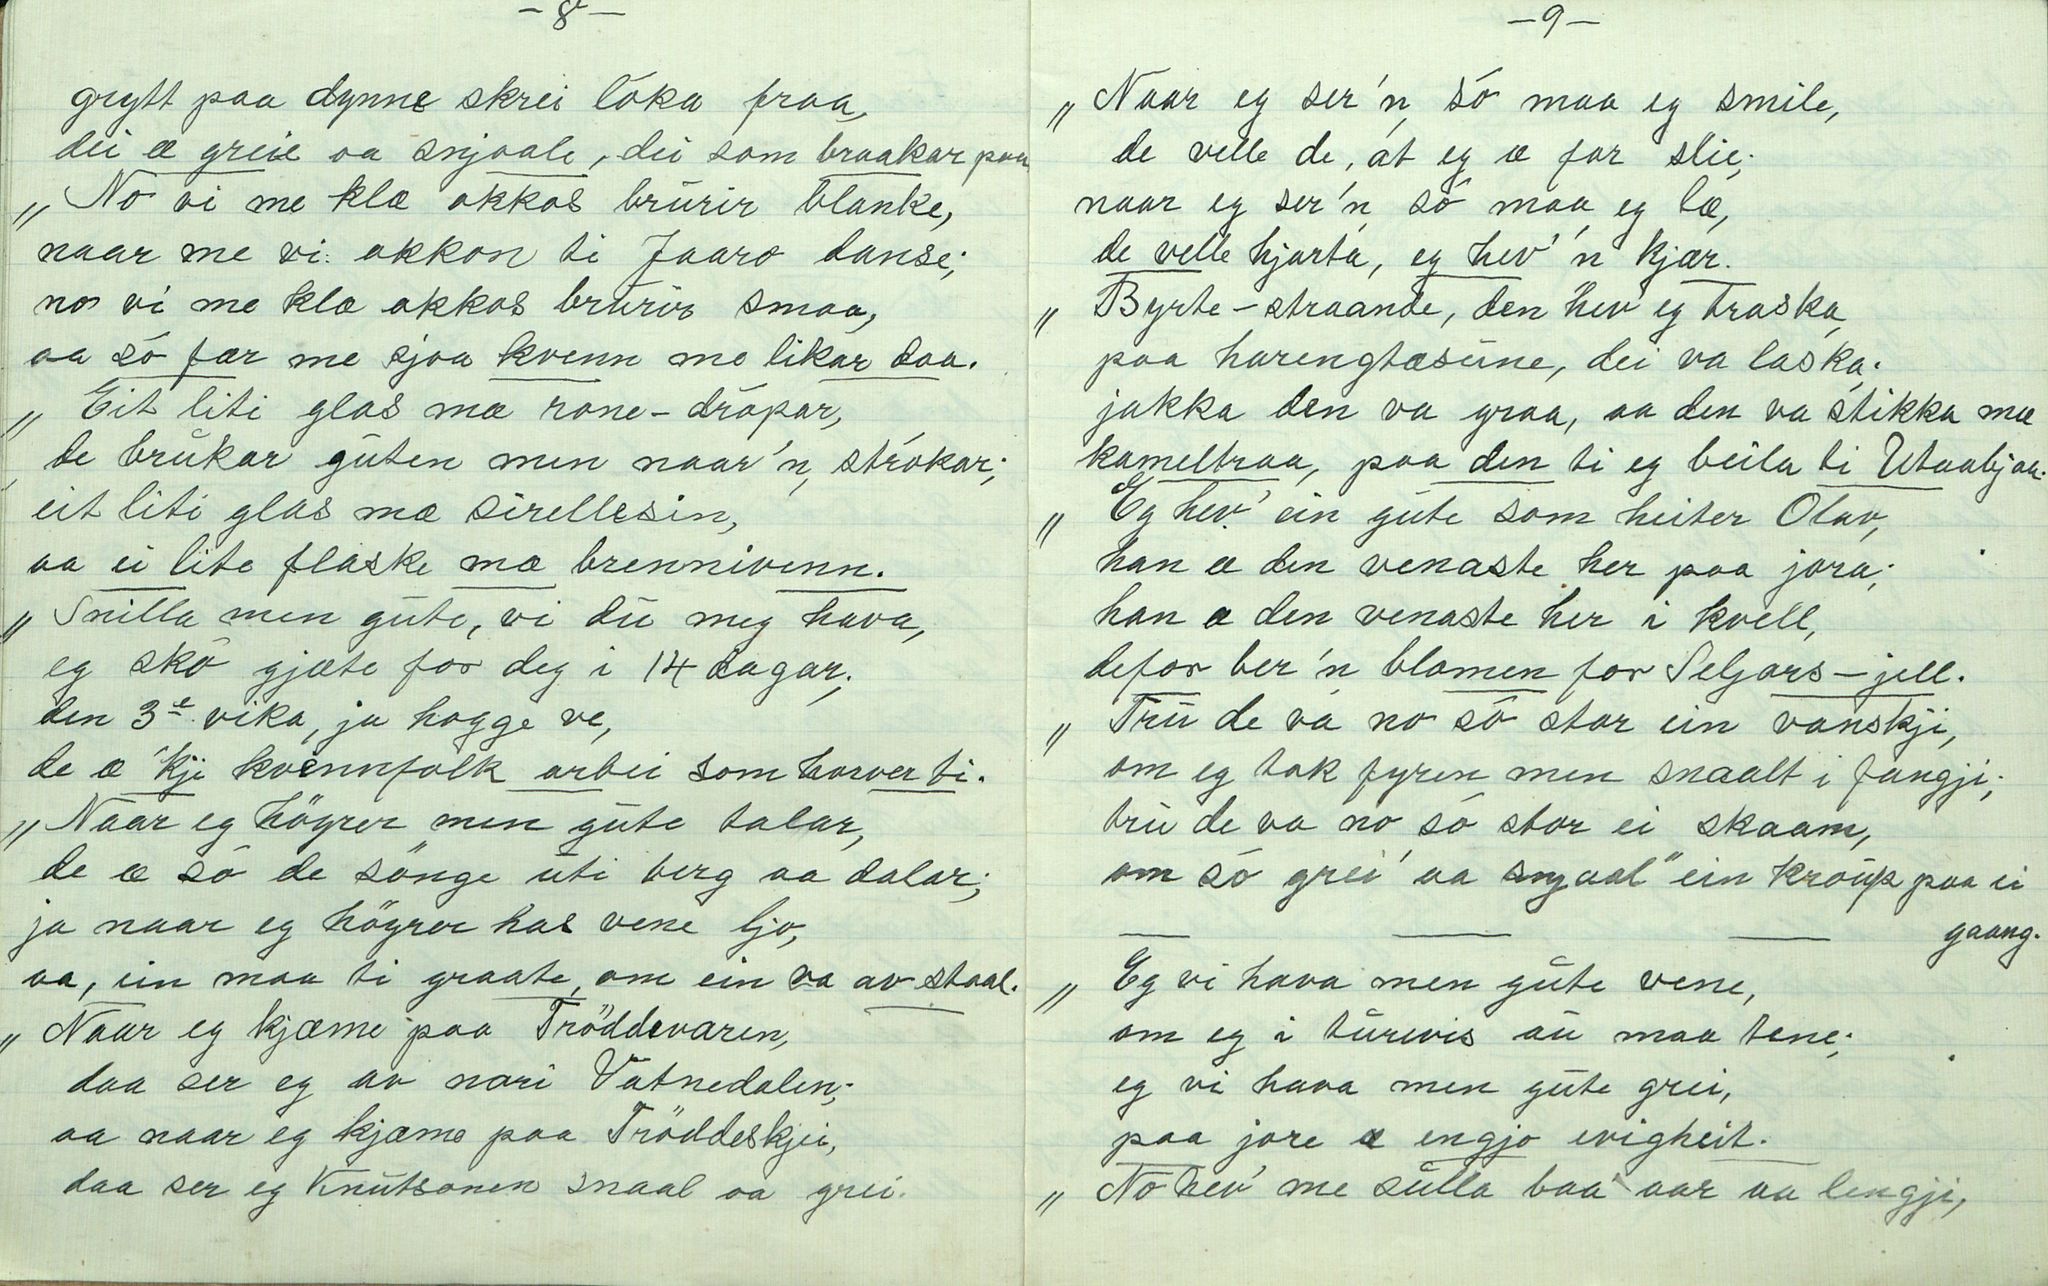 - 8 -
grytt paa dynne skrei lóka fraa,
dei æ greie aa snjoale, dei som braakar paa
„ No vi me klæ okkos brúrir blanke,
naar me vi okkon ti Jaaro danse;
no vi me klæ okkos brúrir smaa,
aa só fær me sjaa kvenn me likar daa.
„ Eit liti glas mæ rone-drópar,
de brúkar gúten men naar'n strókar;
eit liti glas mæ sirellesin,
aa ei lite flaske mæ brennivenn.
„ Snilla men gúte, vi dú meg hava,
eg skó gjæte for deg i 14 dagar;
den 3e vika, ja hogge ve,
de æ 'kji kvennfolk arbei som horver ti.
„ Naar eg höyrer men gúte talar,
de æ só de sönge úti berg aa dalar;
ja naar eg höyrer has vene ljo,
aa, ein maa ti graate, om ein va av staal.
„ Naar eg kjæme paa Tröddevaren,
daa ser eg av nori Vatnedalen;
aa naar eg kjæme paa Tröddeskjei,
daa ser eg Knútsonen snaal aa grei.
- 9 -
„ Naar eg ser'n, só maa eg smile,
de velle de, át eg æ for slie;
naar eg ser'n, só maa eg læ,
de velle hjarta, eg hev' 'n kjær.
„ Byrte-straande, den hev eg traska,
paa harengtæsúne, dei va laska.
jakka den va graa, aa den va stikka mæ
kameltraa, paa den ti eg beila ti Utaabjaa.
„ Eg hev' ein gúte som heiter Olav,
han æ den venaste her paa jora;
han æ den venaste her i kvell,
defor ber'n blomen for Seljors-jell.
„ Trú de va no só stor ein vanskji,
om eg tok fyren men snaalt i fangji;
trú de va no só stor ei skaam,
om só grei' aa snjaal" ein kroúp paa ei
gaang.
„ Eg vi hava men gúte vene,
om eg i túrevis aú maa tene;
eg vi hava men gúte grei,
paa jore æ engjo evigheit.
„ No hev' me súlla baa' aar aa lengji,